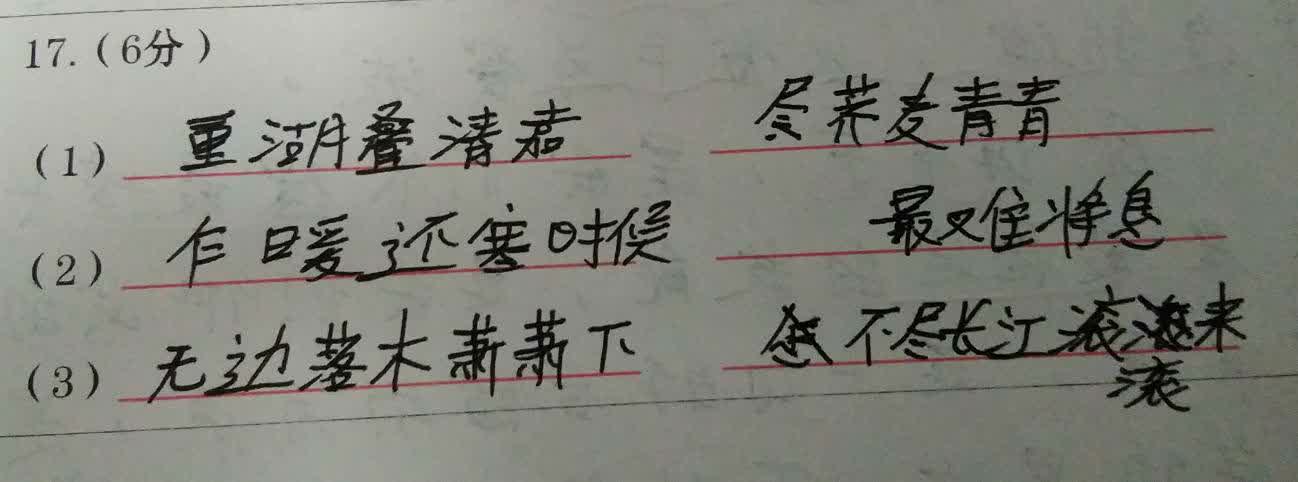 17.(6分)
(1) 重湖叠清嘉 尽荞麦青青
(2) 乍暖还寒时候 最难将息
(3) 无边落木萧萧下 不尽长江滚来
滚